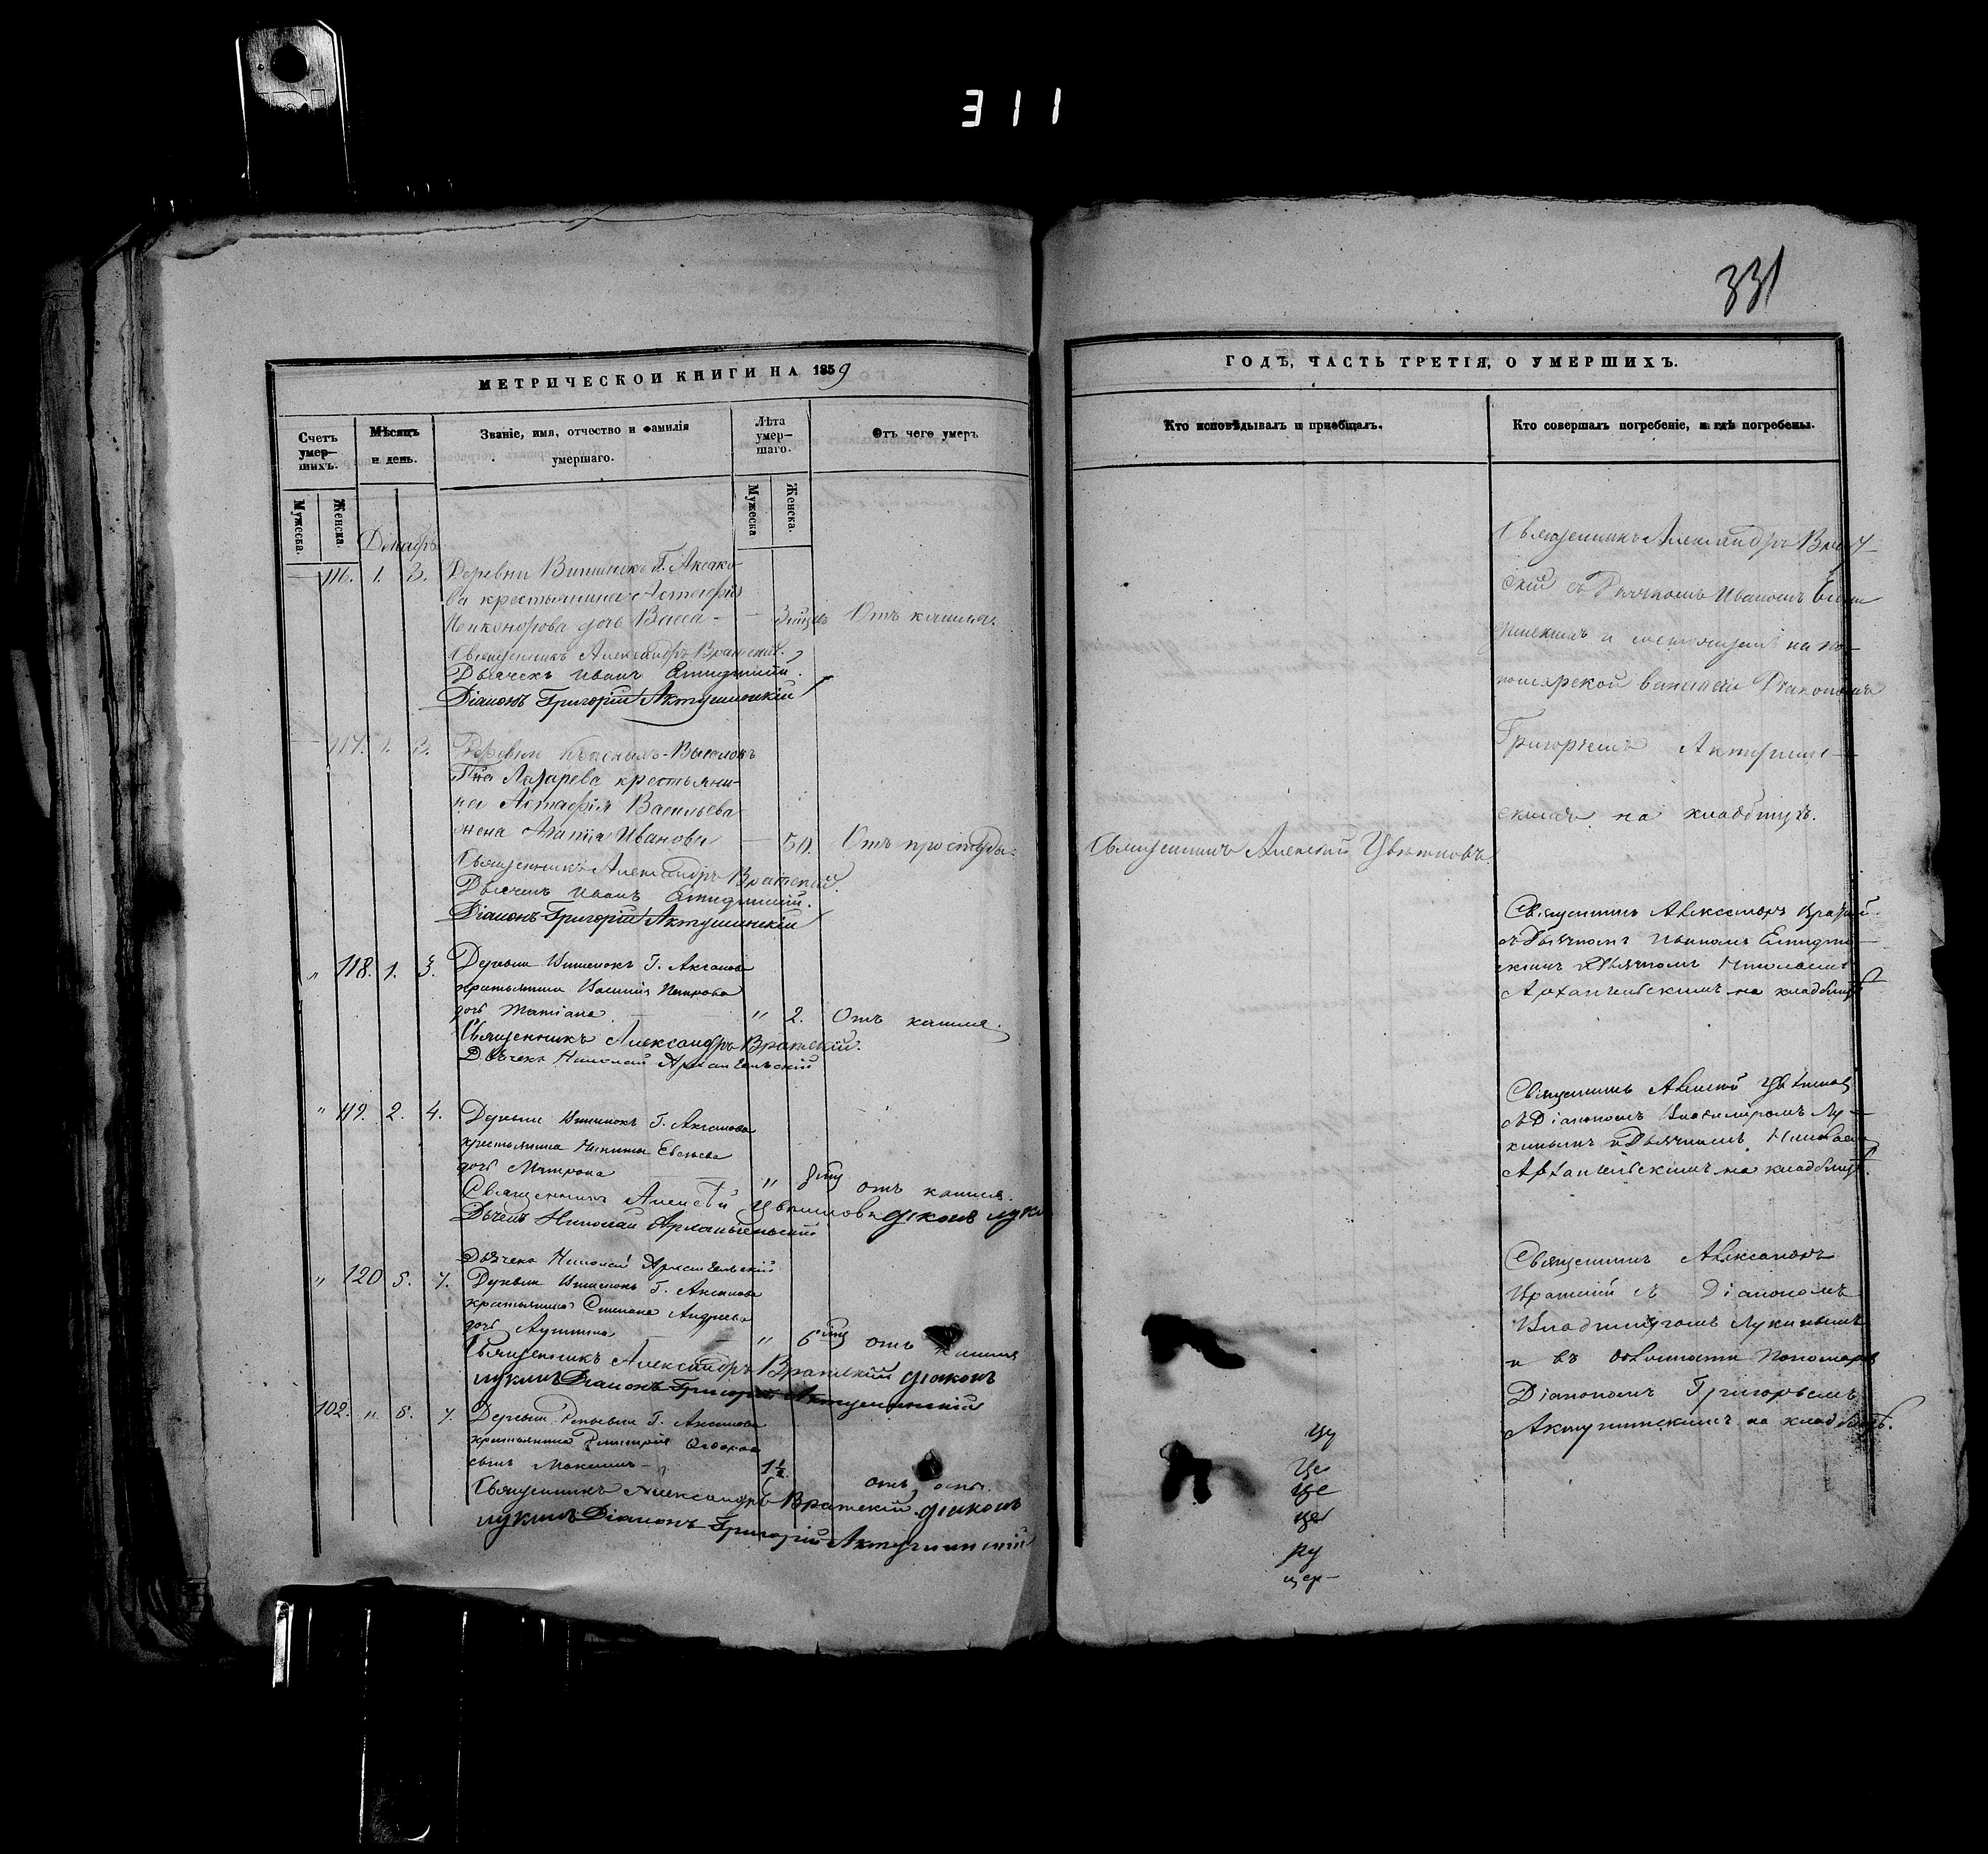 311
331
МЕТРИЧЕСКОЙ КНИГИ НА 1859
Счетъ умер-шихъ.
Мѣсяцъ и день.
Званіе, имя, отчество и фамилія умершаго.
Лѣта умер-шаго.
Отъ чего умеръ
Мужеска.
Женска.
Мужеска
Женска.
Декабрь
116. 1. 3. Деревни Вишенокъ Г. Аксако-
ва крестьянина Астафія
Никонорова дочь Васса — — 3 мцъ Отъ кашля.
Священникъ Александръ Вратскій.
Дьячекъ Иванъ
Діаконъ Григорій Актушинскій
117. 1. 3. Деревни Выселокъ
Лазарева крестьяни-
на Астафія Васильева
жена Иванова — 50. Отъ простуды.
Священникъ Александръ Вратскій.
Дьячекъ Иванъ
Діаконъ Григорій Актушинскій
" 118. 1. 3. Деревни Вишенокъ Г. Аксакова
крестьянина Василія Петрова
дочь Татіана " 2. Отъ кашля.
Священникъ Александръ Вратскій.
Дьячекъ Николай Архангельскій
" 119. 2. 4. Деревни Вишенокъ Г. Аксакова
крестьянина Никиты
дочь Матрона " 8 мцъ отъ кашля.
Священникъ Алексѣй Цвѣтковъ діаконъ
Дьячекъ Николай Архангельскій
Дьячекъ Николай Архангельскій
" 120 5. 7. Деревни Вишенокъ Г. Аксакова
крестьянина Степана Андреева
дочь " 6 мцъ отъ кашля
Священникъ Александръ Вратскій діаконъ
Лукинъ Діаконъ Григорій Актушинскій
102. " 5. 7. Деревни Г. Аксакова
крестьянина Димитрія
сынъ Максимъ — 1½ отъ оспы.
Священникъ Александръ Вратскій діаконъ
Лукинъ Діаконъ Григорій Актушинскій
ГОДЪ, ЧАСТЬ ТРЕТІЯ, О УМЕРШИХЪ.
Кто исповѣдывалъ и пріобщалъ.
Кто совершалъ погребеніе, и гдѣ погребены.
Священникъ Александръ Врат-
скій съ Дьячкомъ Иваномъ
и на по-
номарской ваканціи Діакономъ
Григоріемъ Актушин-
скимъ на кладбищѣ.
Священникъ Алексѣй Цвѣтковъ.
Священникъ Александръ Вратскій
съ Дьячкомъ Иваномъ
скимъ и Дьячкомъ Николаемъ
Архангельскимъ на кладбищѣ
Священникъ Алексѣй Цвѣтковъ
съ Діакономъ Владиміромъ Лу-
кинымъ и Дьячкомъ Николаемъ
Архангельскимъ на кладбищѣ.
Священникъ Александръ
Вратскій съ Діакономъ
Владиміромъ Лукинымъ
и въ должности Пономаря
Діакономъ Григорьемъ
Актушинскимъ на кладбищѣ.
це
це
це
ру
цер-